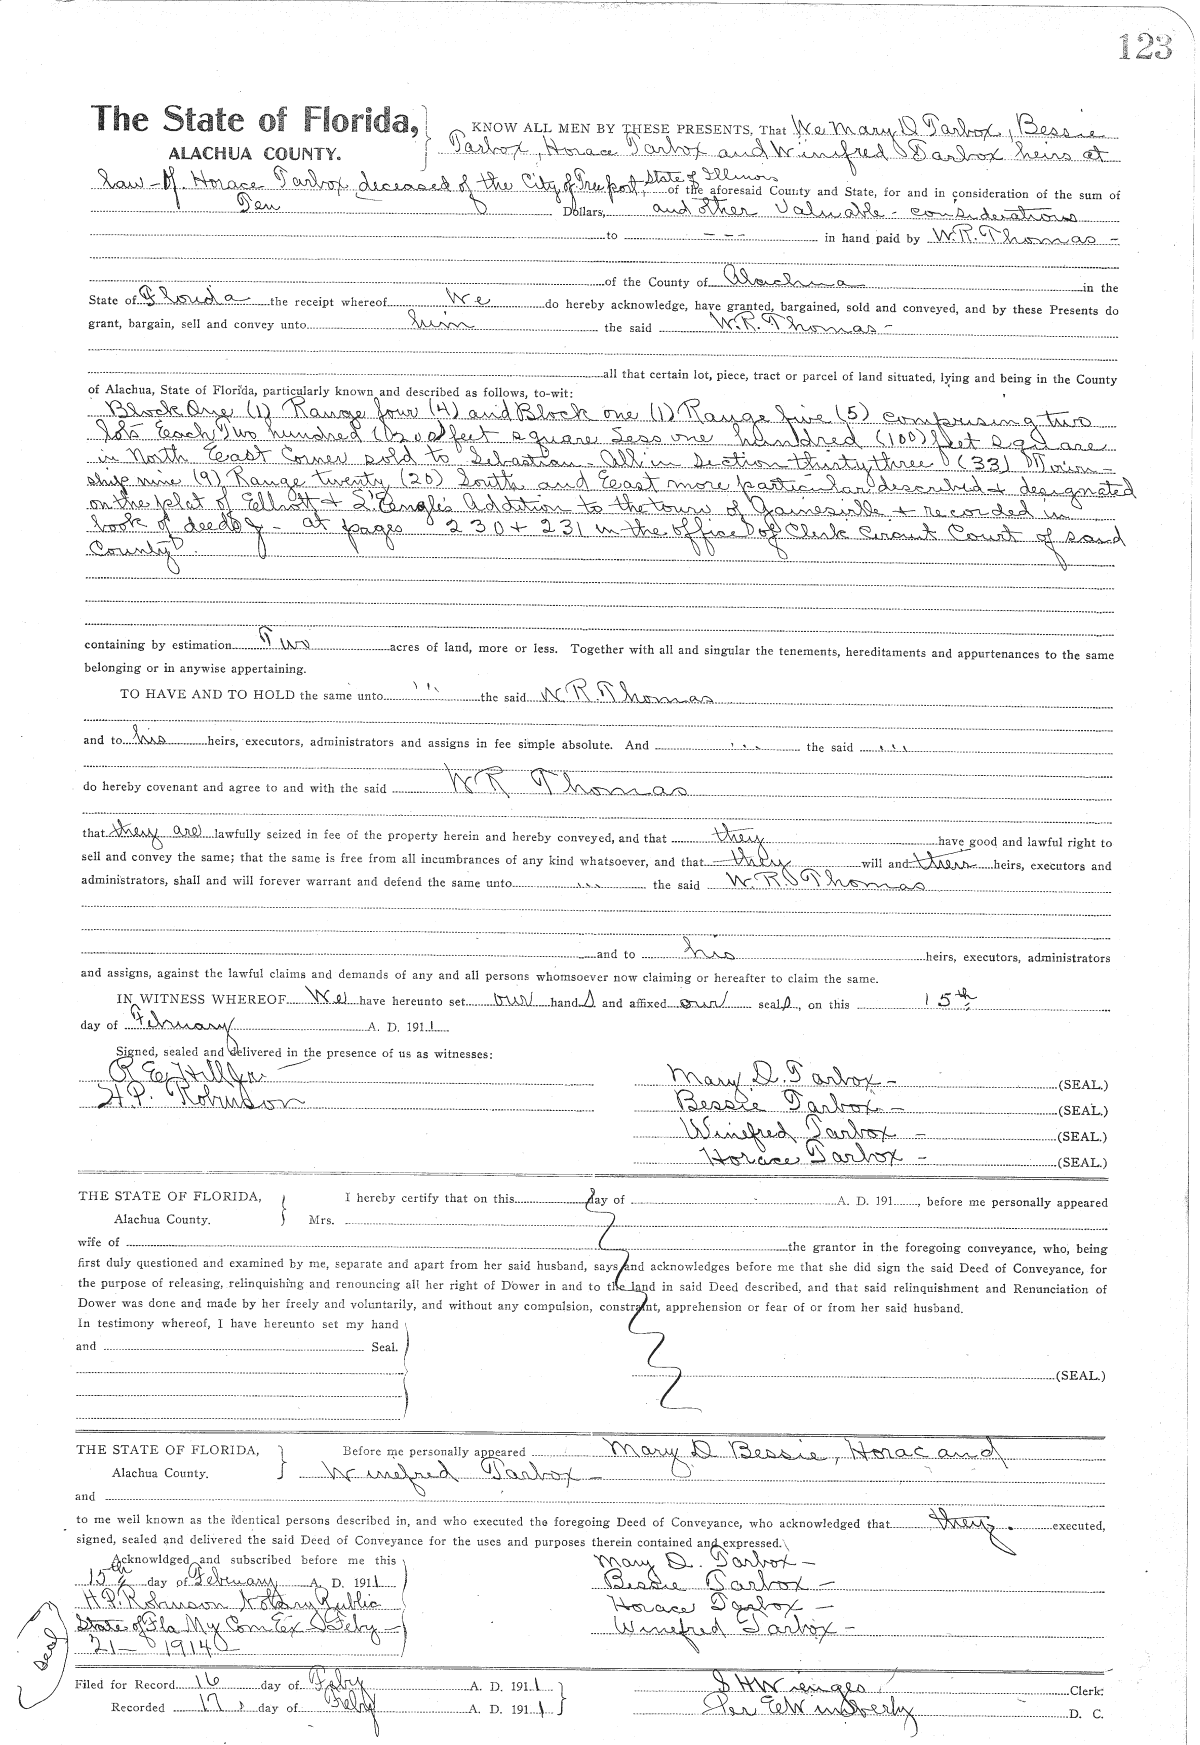 123
The State of Florida, KNOW ALL MEN BY THESE PRESENTS, That We Mary D Tarbox, Bessie
ALACHUA COUNTY. Tarbox, Horace Tarbox and Winifred Tarbox heirs at
law of Horace Tarbox deceased of the City of Freeport, State of Illinois of the aforesaid County and State, for and in consideration of the sum of
Ten Dollars, and other Valuable considerations
to --- in hand paid by W.R. Thomas -
of the County of Alachua in the
State of Florida the receipt whereof We do hereby acknowledge, have granted, bargained, sold and conveyed, and by these Presents do
grant, bargain, sell and convey unto him the said W.R. Thomas -
all that certain lot, piece, tract or parcel of land situated, lying and being in the County
of Alachua, State of Florida, particularly known and described as follows, to-wit:
Block One (1) Range four (4) and Block one (1) Range five (5) comprising two
lots Each Two hundred (200) feet square Less one hundred (100) feet square
in North East Corner sold to Sebastian - All in Section thirty three (33) Town-
ship nine (9) Range twenty (20) South and East more particular described & designated
on the plat of Elliott & L'Engle's Addition to the town of Gainesville & recorded in
book of deeds - at pages 230 & 231 in the office of Clerk Circuit Court of said
County.
containing by estimation Two acres of land, more or less. Together with all and singular the tenements, hereditaments and appurtenances to the same
belonging or in anywise appertaining.
TO HAVE AND TO HOLD the same unto ''' the said W.R. Thomas
and to his heirs, executors, administrators and assigns in fee simple absolute. And ... the said ...
do hereby covenant and agree to and with the said W R Thomas
that they are lawfully seized in fee of the property herein and hereby conveyed, and that they have good and lawful right to
sell and convey the same; that the same is free from all incumbrances of any kind whatsoever, and that they will and theirs heirs, executors and
administrators, shall and will forever warrant and defend the same unto ... the said W. R. Thomas
and to his heirs, executors, administrators
and assigns, against the lawful claims and demands of any and all persons whomsoever now claiming or hereafter to claim the same.
IN WITNESS WHEREOF We have hereunto set our hands and affixed our seals, on this 15th
day of February A. D. 1911
Signed, sealed and delivered in the presence of us as witnesses:
R E Hill Jr. Mary D. Tarbox - (SEAL.)
H.P. Robinson Bessie Tarbox - (SEAL.)
Winefred Tarbox - (SEAL.)
Horace Tarbox - (SEAL.)
THE STATE OF FLORIDA, I hereby certify that on this day of A. D. 191 , before me personally appeared
Alachua County. Mrs.
wife of the grantor in the foregoing conveyance, who, being
first duly questioned and examined by me, separate and apart from her said husband, says and acknowledges before me that she did sign the said Deed of Conveyance, for
the purpose of releasing, relinquishing and renouncing all her right of Dower in and to the land in said Deed described, and that said relinquishment and Renunciation of
Dower was done and made by her freely and voluntarily, and without any compulsion, constraint, apprehension or fear of or from her said husband.
In testimony whereof, I have hereunto set my hand
and Seal.
(SEAL.)
THE STATE OF FLORIDA, Before me personally appeared Mary D Bessie, Horac and
Alachua County. Winefred Tarbox -
and
to me well known as the identical persons described in, and who executed the foregoing Deed of Conveyance, who acknowledged that they executed,
signed, sealed and delivered the said Deed of Conveyance for the uses and purposes therein contained and expressed.
Acknowldged and subscribed before me this Mary D. Tarbox -
15th day of February A. D. 1911 Bessie Tarbox -
H.P. Robinson Notary Public Horace Tarbox -
State of Fla My Com Ex Feby - Winefred Tarbox -
21 - 1914
Seal
Filed for Record 16 day of Feby A. D. 1911 S H Wienges Clerk:
Recorded 17 day of Feby A. D. 1911 Per E W Wimberly D. C.